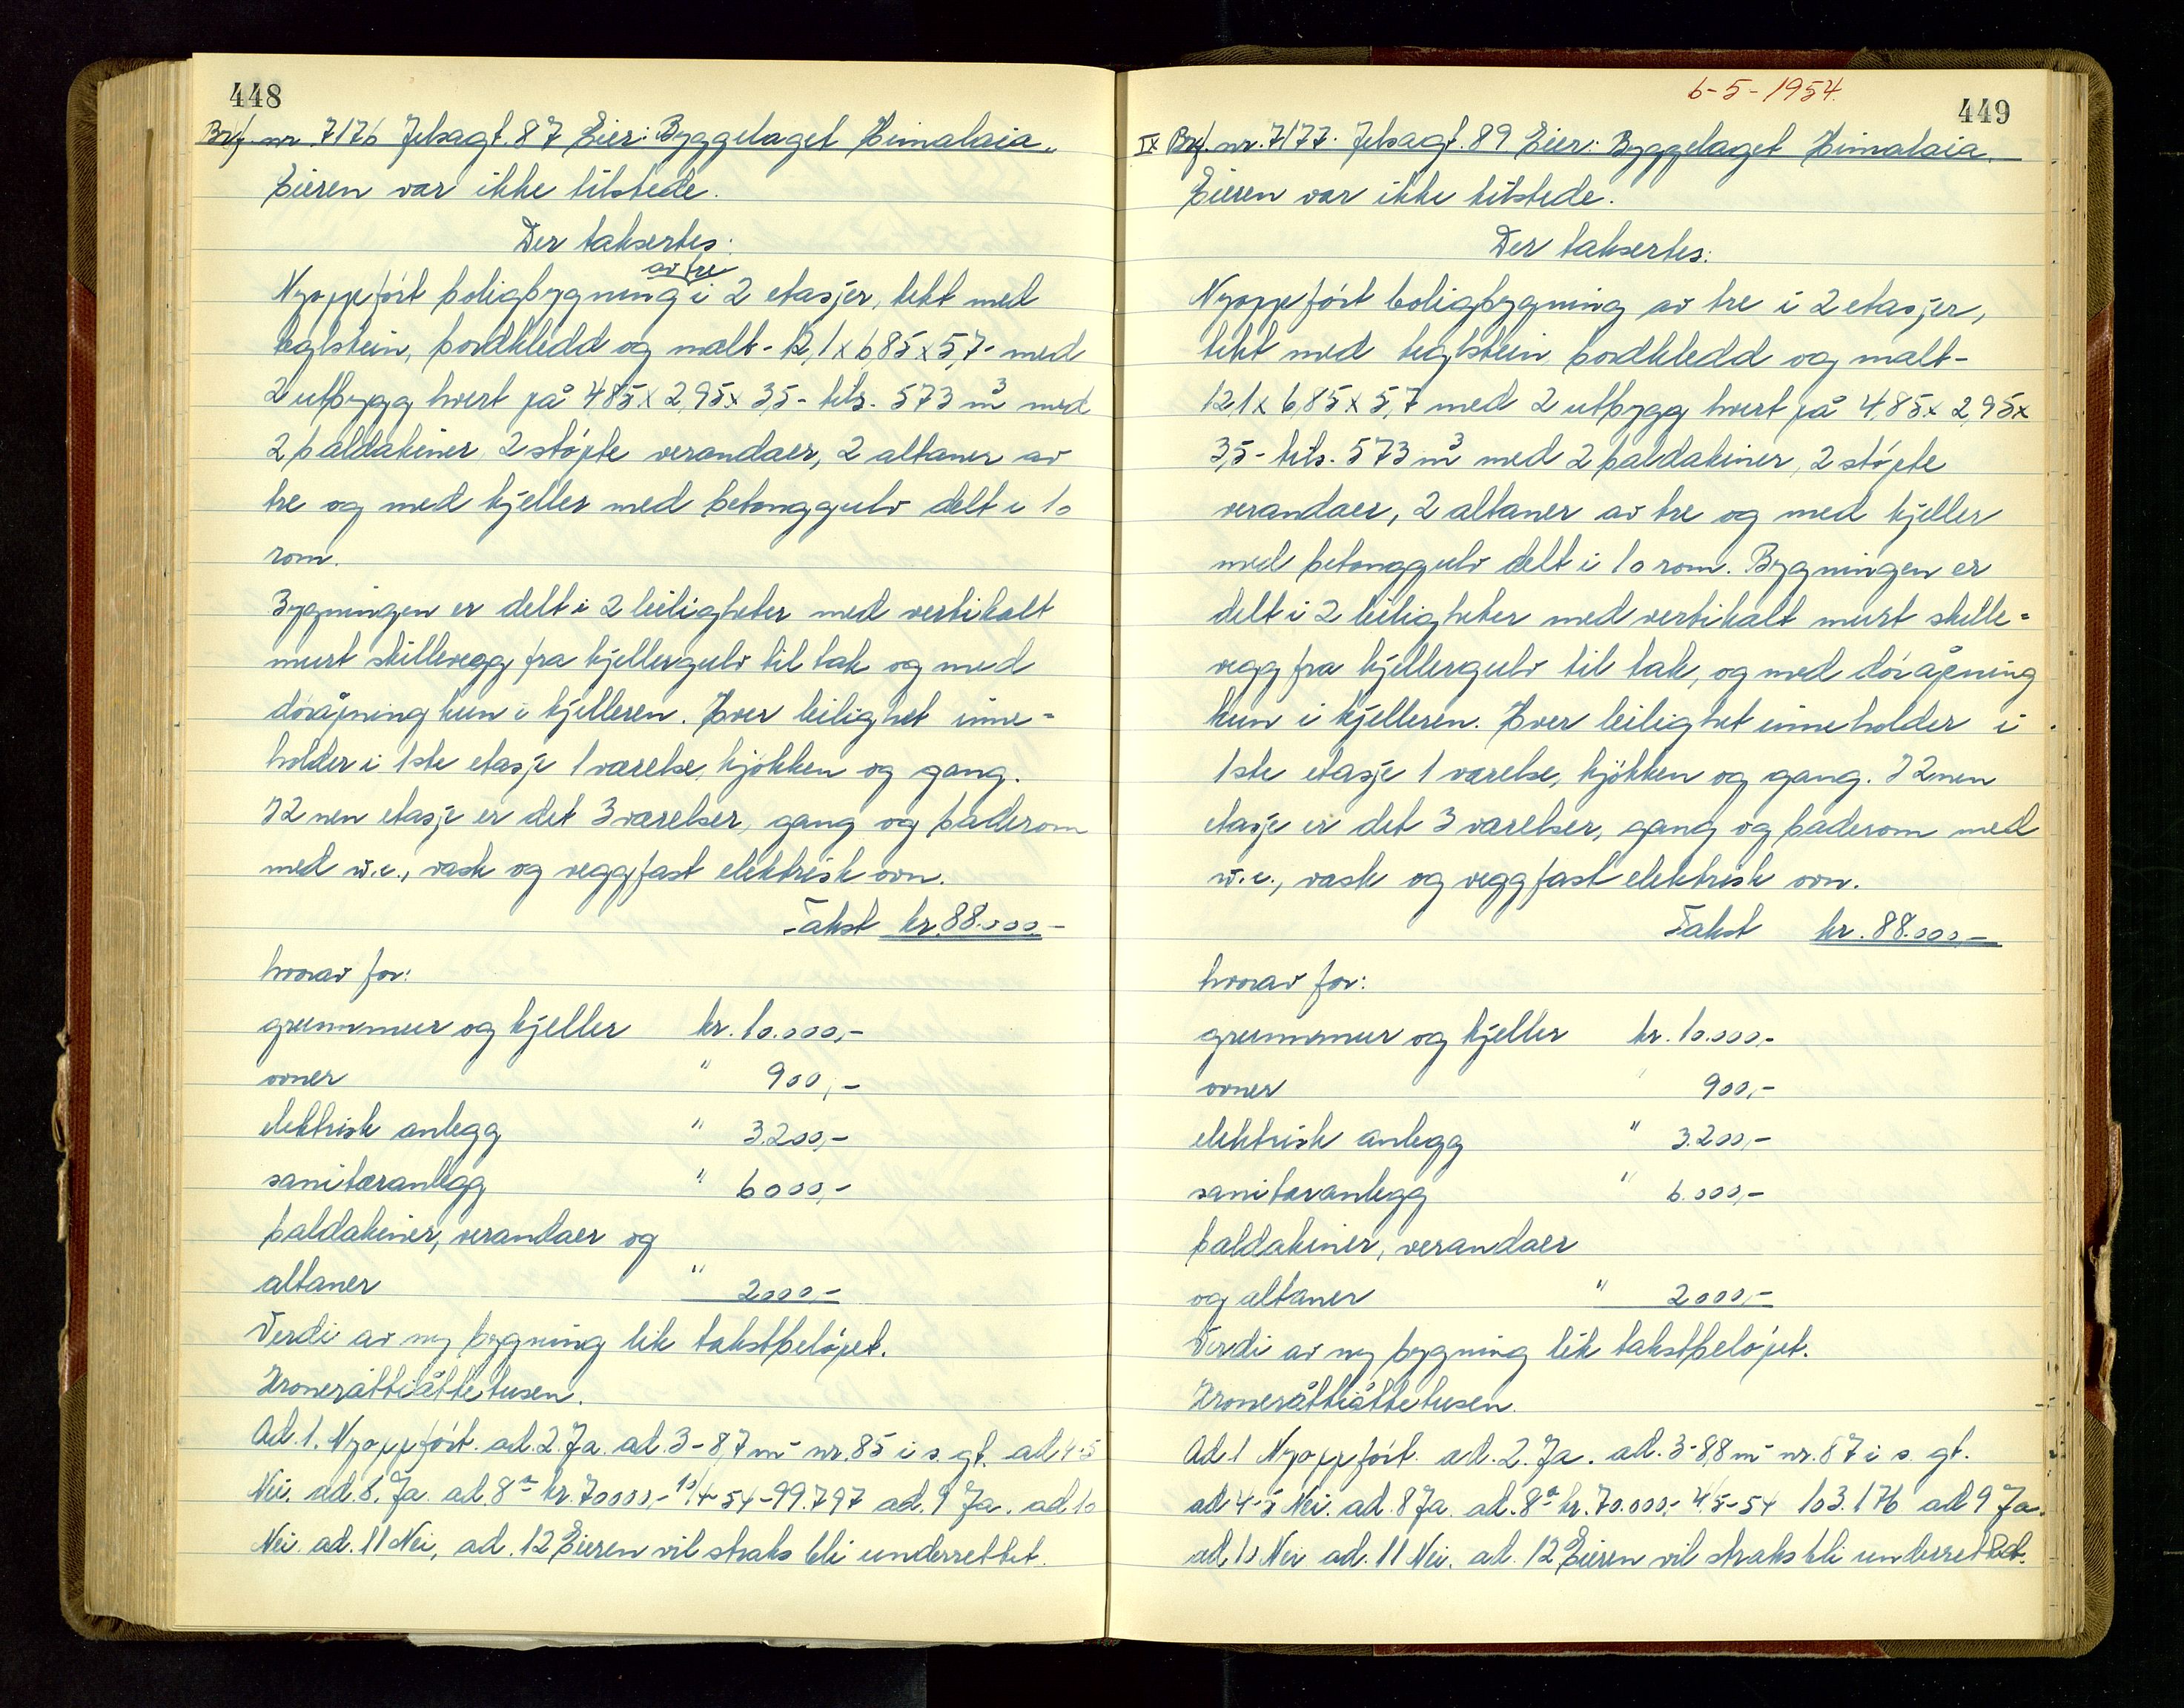 448
Brf. nr. 7176 Jelsagt. 87 Eier: Byggelaget Himalaia.
Eieren var ikke tilstede.
Der taksertes:
av tre
Nyoppført boligbygning i 2 etasjer, tekt med
teglstein, bordkledd og malt - 12,1 x 6,85 x 5,7 - med
2 utbygg hvert på 4,85 x 2,95 x 3,5 - tils. 573 m³ med
2 baldakiner, 2 støpte verandaer, 2 altaner av
tre og med kjeller med betonggulv delt i 10
rom.
Bygningen er delt i 2 leiligheter med vertikalt
murt skillevegg fra kjellergulv til tak og med
døråpning kun i kjelleren. Hver leilighet inne=
holder i 1ste etasje 1 værelse, kjøkken og gang.
I 2nen etasje er det 3 værelser, gang og baderom
med w.c., vask og veggfast elektrisk ovn.
Takst kr. 88.000.-
hvorav for:
grunnmur og kjeller kr. 10.000,-
ovner " 900,-
elektrisk anlegg " 3.200,-
sanitæranlegg " 6000,-
baldakiner, verandaer og
altaner " 2000,-
Verdi av ny bygning lik takstbeløpet.
Kroneråttiåttetusen.
Ad. 1. Nyoppført. ad. 2. Ja. ad. 3 - 8,7 m - nr. 85 i s. gt. ad 4-5
Nei. ad. 8. Ja. ad. 8a kr. 70000,- 10/4-54 - 99.797 ad. 9 Ja. ad 10
Nei. ad. 11 Nei, ad. 12 Eieren vil straks bli underrettet.
6-5-1954.
449
IX Brf. nr. 7177. Jelsagt. 89 Eier: Byggelaget Himalaia.
Eieren var ikke tilstede.
Der taksertes:
Nyoppført boligbygning av tre i 2 etasjer,
tekt med teglstein, bordkledd og malt -
12,1 x 6,85 x 5,7 med 2 utbygg hvert på 4,85 x 2,95 x
3,5 - tils. 573 m³ med 2 baldakiner, 2 støpte
verandaer, 2 altaner av tre og med kjeller
med betonggulv delt i 10 rom. Bygningen er
delt i 2 leiligheter med vertikalt murt skille=
vegg fra kjellergulv til tak, og med døråpning
kun i kjelleren. Hver leilighet inneholder i
1ste etasje 1 værelse, kjøkken og gang. I 2nen
etasje er det 3 værelser, gang og baderom med
w.c., vask og veggfast elektrisk ovn.
Takst kr. 88.000,-
hvorav for:
grunnmur og kjeller kr. 10.000,-
ovner " 900,-
elektrisk anlegg " 3.200,-
sanitæranlegg " 6.000,-
baldakiner, verandaer
og altaner " 2000,-
Verdi av ny bygning lik takstbeløpet.
Kroneråttiåttetusen.
Ad. 1 Nyoppført. ad. 2. Ja. ad. 3 - 8,8 m - nr. 87 i s. gt.
ad 4-5 Nei. ad. 8 Ja. ad. 8a kr. 70.000,- 4/5-54 103.176 ad 9 Ja.
ad. 10 Nei ad. 11 Nei. ad. 12 Eieren vil straks bli underrettet.